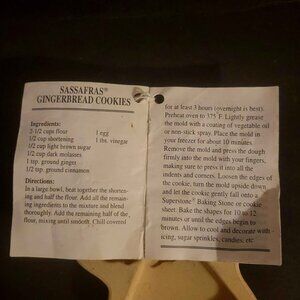 SASSAFRAS®
GINGERBREAD COOKIES
Ingredients:
2-1/2 cups flour
1 egg
1/2 cup shortening
1 tbs. vinegar
1/2 cup light brown sugar
1/2 cup dark molasses
1 tsp. ground ginger
1/2 tsp. ground cinnamon
Directions:
In a large bowl, beat together the shorten-
ing and half the flour. Add all the remain-
ing ingredients to the mixture and blend
thoroughly. Add the remaining half of the
flour, mixing until smooth. Chill covered
for at least 3 hours (overnight is best).
Preheat oven to 375 F. Lightly grease
the mold with a coating of vegetable oil
or non-stick spray. Place the mold in
your freezer for about 10 minutes.
Remove the mold and press the dough
firmly into the mold with your fingers,
making sure to press it into all the
indents and corners. Loosen the edges of
the cookie, turn the mold upside down
and let the cookie gently fall onto a
Superstone® Baking Stone or cookie
sheet. Bake the shapes for 10 to 12
minutes or until the edges are
brown. Allow to cool and decorate with
icing, sugar sprinkles, candies, etc